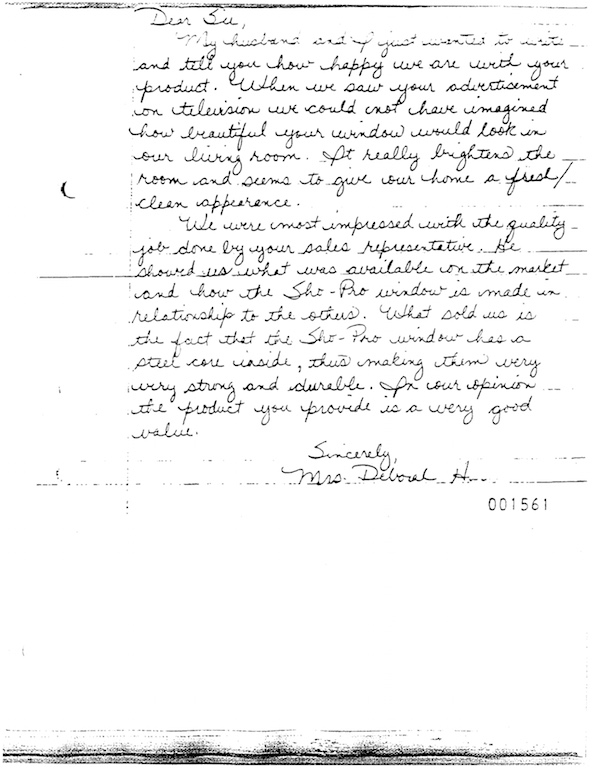 Dear Sir,
My husband and I just wanted to write
and tell you how happy we are with your
product. When we saw your advertisement
on television we could not have imagined
how beautiful your window would look in
our living room. It really brightens the
room and seems to give our home a fresh/
clean appearance.
We were most impressed with the quality
job done by your sales representative. He
showed us what was available on the market
and how the Sho-Pro window is made in
relationship to the others. What sold us is
the fact that the Sho-Pro window has a
steel core inside, thus making them very
very strong and durable. In our opinion
the product you provide is a very good
value.
Sincerely,
Mrs. Deborah H.
001561